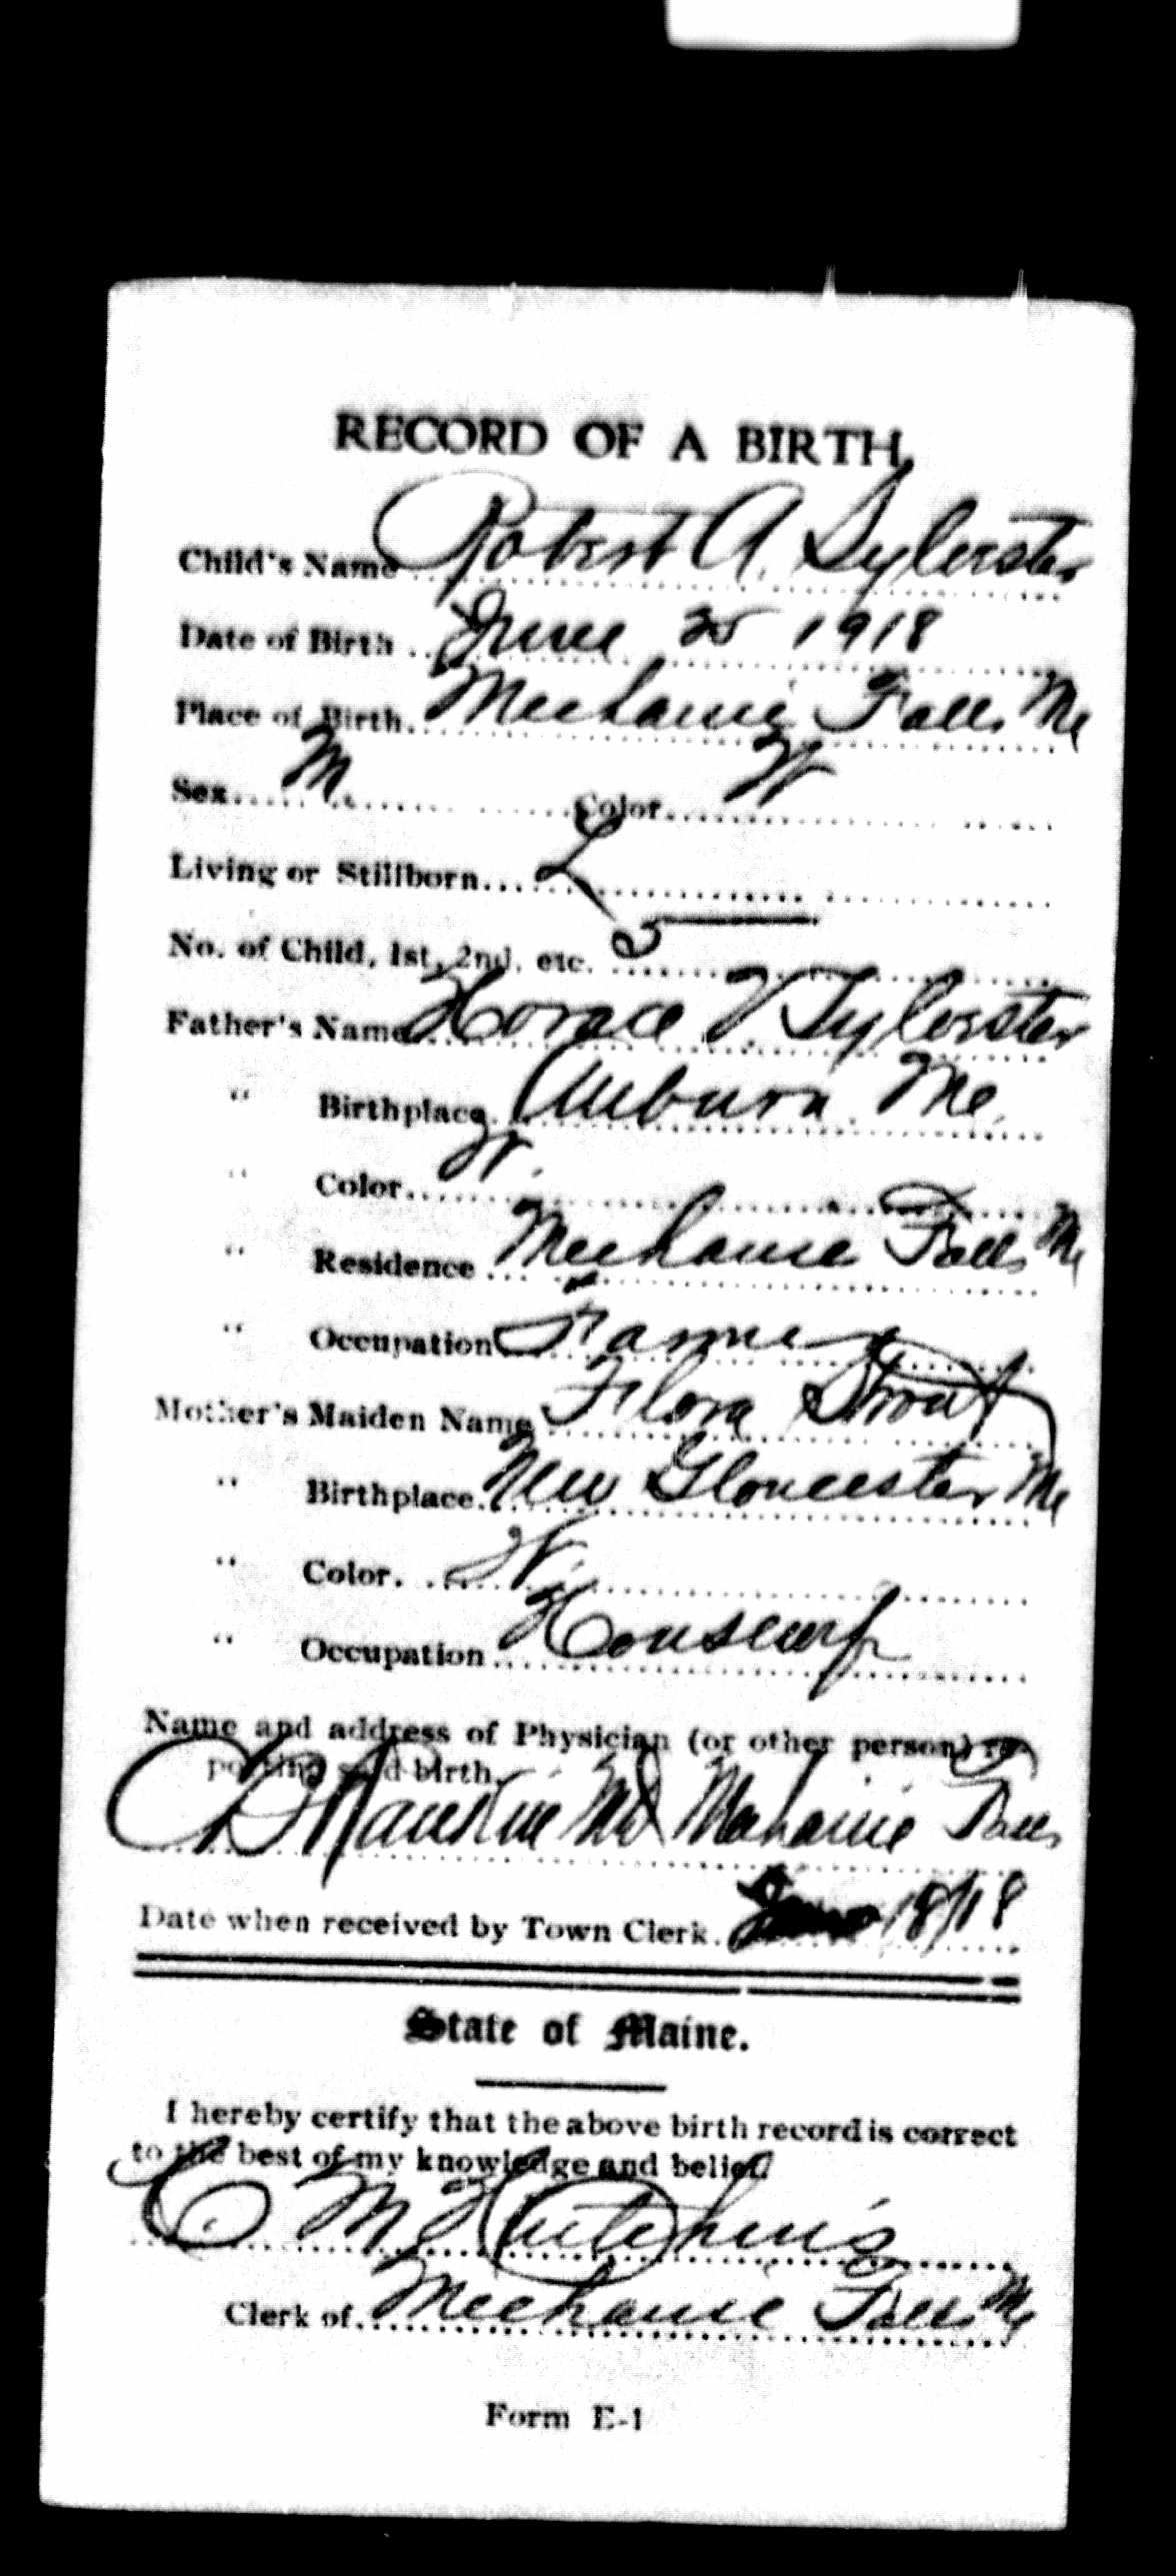 RECORD OF A BIRTH.
Child's Name Robert A. Sylvester
Date of Birth June 25 1918
Place of Birth Mechanic Falls Me
Sex M Color W
Living or Stillborn L
No. of Child, 1st, 2nd, etc. 5
Father's Name Horace V Sylvester
" Birthplace Auburn Me.
" Color W.
" Residence Mechanic Falls Me
" Occupation Farmer
Mother's Maiden Name Flora Strout
" Birthplace New Gloucester Me
" Color W.
" Occupation Housewf
Name and address of Physician (or other person) re-
porting said birth.
MD Mechanic Falls
Date when received by Town Clerk. 18/18
State of Maine.
I hereby certify that the above birth record is correct
to the best of my knowledge and belief.
C M Hutchins
Clerk of Mechanic Falls Me
Form E-1